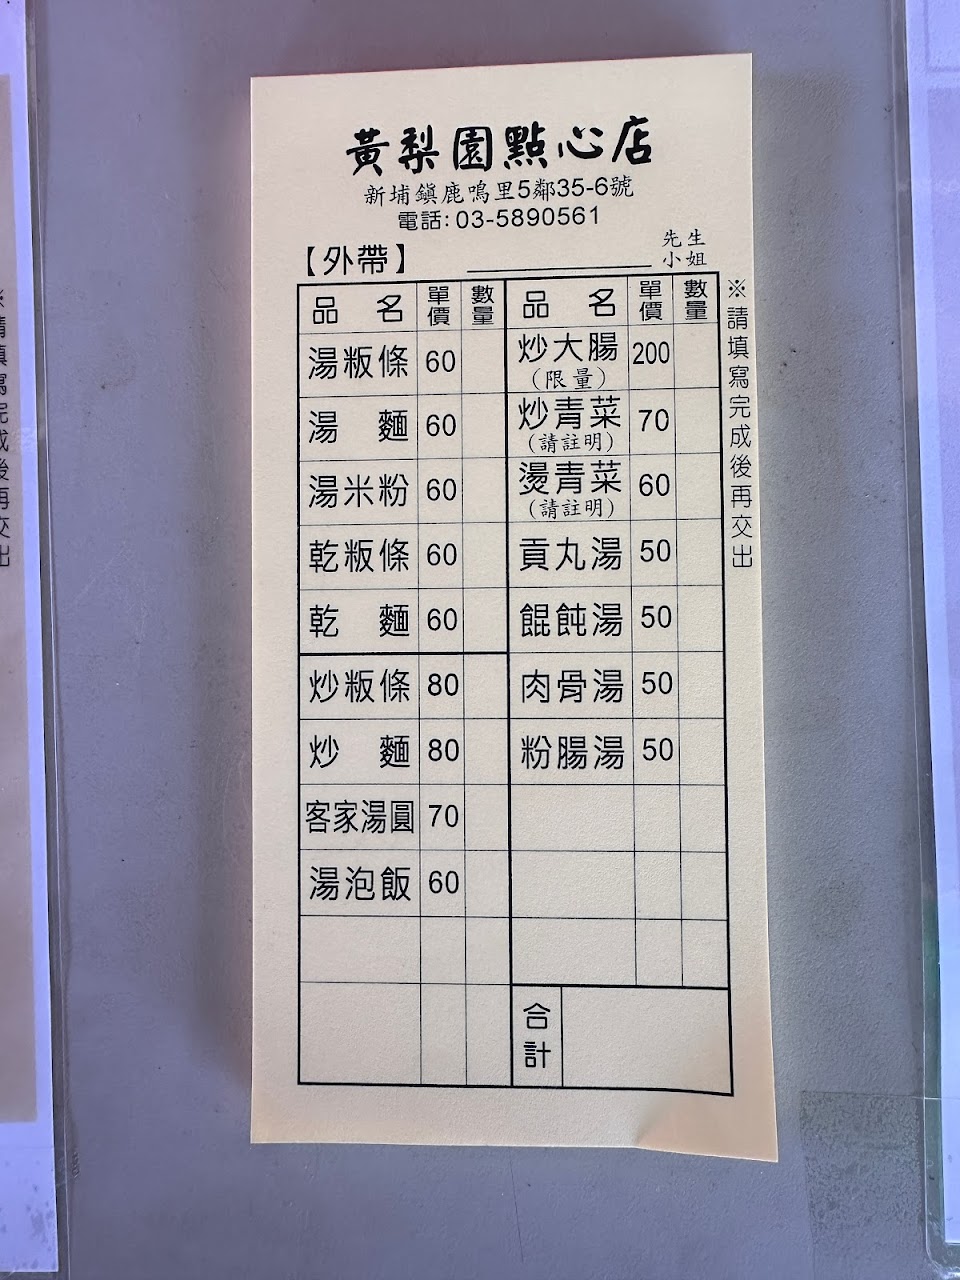 黃梨園點心店
新埔鎮鹿鳴里5鄰35-6號
電話:03-5890561
【外帶】 先生 小姐
品名 單價 數量
湯粄條 60
湯麵 60
湯米粉 60
乾粄條 60
乾麵 60
炒粄條 80
炒麵 80
客家湯圓 70
湯泡飯 60
品名 單價 數量
炒大腸 200
(限量)
炒青菜 70
(請註明)
燙青菜 60
(請註明)
貢丸湯 50
餛飩湯 50
肉骨湯 50
粉腸湯 50
合計
※請填寫完成後再交出
※請填寫完成後再交出